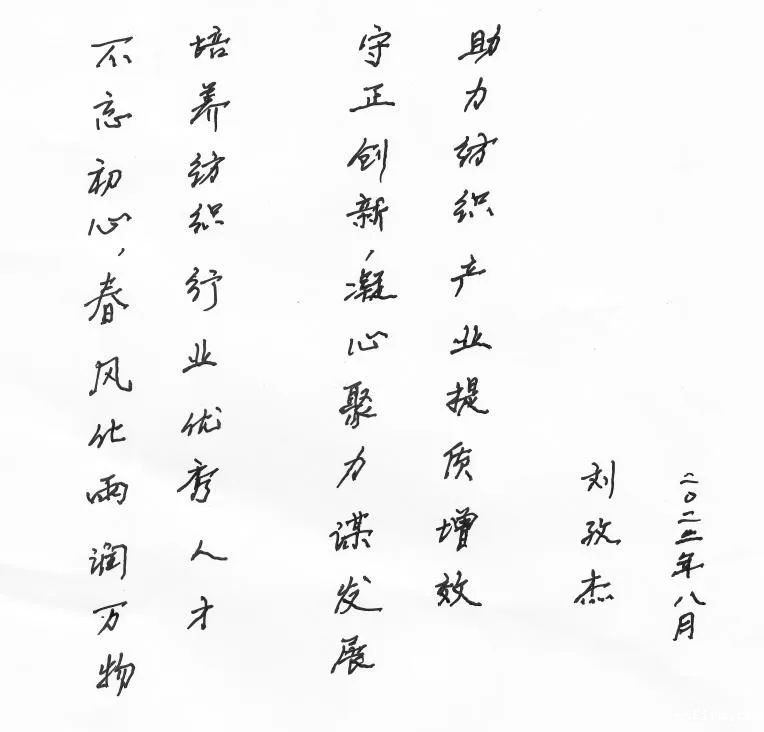 不忘初心，春风化雨润万物
培养纺织行业优秀人才
守正创新，凝心聚力谋发展
助力纺织产业提质增效
刘孜杰
二〇二三年八月